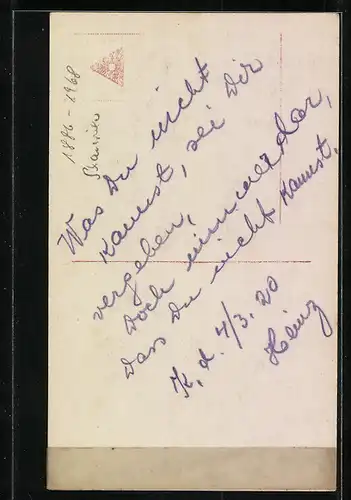 1886 - 1968
Was Du nicht
kannst, sei Dir
vergeben,
Doch nimmer dar,
Dass Du nicht kannst.
K. d. 4/3. 20
Heinz